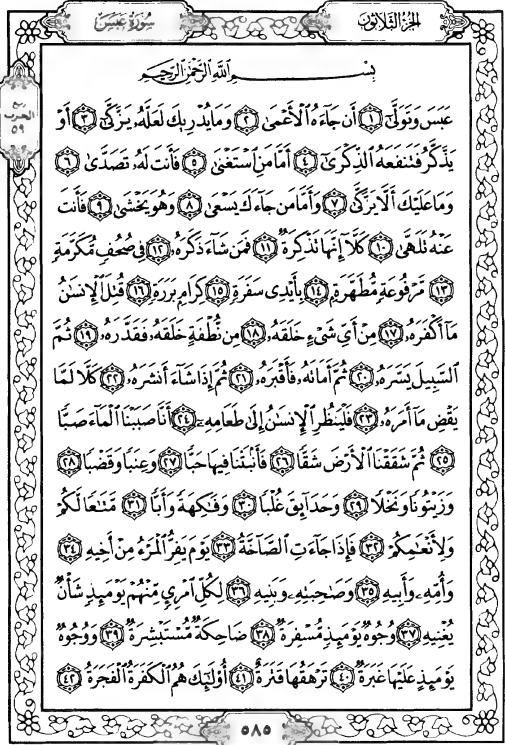 الجزء الثلاثون
سورة عبس
ربع
الحزب
٥٩
بِسْمِ اللَّهِ الرَّحْمَٰنِ الرَّحِيمِ
عَبَسَ وَتَوَلَّىٰ ١ أَن جَاءَهُ الْأَعْمَىٰ ٢ وَمَا يُدْرِيكَ لَعَلَّهُ يَزَّكَّىٰ ٣ أَوْ
يَذَّكَّرُ فَتَنفَعَهُ الذِّكْرَىٰ ٤ أَمَّا مَنِ اسْتَغْنَىٰ ٥ فَأَنتَ لَهُ تَصَدَّىٰ ٦
وَمَا عَلَيْكَ أَلَّا يَزَّكَّىٰ ٧ وَأَمَّا مَن جَاءَكَ يَسْعَىٰ ٨ وَهُوَ يَخْشَىٰ ٩ فَأَنتَ
عَنْهُ تَلَهَّىٰ ١٠ كَلَّا إِنَّهَا تَذْكِرَةٌ ١١ فَمَن شَاءَ ذَكَرَهُ ١٢ فِي صُحُفٍ مُّكَرَّمَةٍ
١٣ مَّرْفُوعَةٍ مُّطَهَّرَةٍ ١٤ بِأَيْدِي سَفَرَةٍ ١٥ كِرَامٍ بَرَرَةٍ ١٦ قُتِلَ الْإِنسَٰنُ
مَا أَكْفَرَهُ ١٧ مِنْ أَيِّ شَيْءٍ خَلَقَهُ ١٨ مِن نُّطْفَةٍ خَلَقَهُ فَقَدَّرَهُ ١٩ ثُمَّ
السَّبِيلَ يَسَّرَهُ ٢٠ ثُمَّ أَمَاتَهُ فَأَقْبَرَهُ ٢١ ثُمَّ إِذَا شَاءَ أَنشَرَهُ ٢٢ كَلَّا لَمَّا
يَقْضِ مَا أَمَرَهُ ٢٣ فَلْيَنظُرِ الْإِنسَٰنُ إِلَىٰ طَعَامِهِ ٢٤ أَنَّا صَبَبْنَا الْمَاءَ صَبًّا
٢٥ ثُمَّ شَقَقْنَا الْأَرْضَ شَقًّا ٢٦ فَأَنبَتْنَا فِيهَا حَبًّا ٢٧ وَعِنَبًا وَقَضْبًا ٢٨
وَزَيْتُونًا وَنَخْلًا ٢٩ وَحَدَائِقَ غُلْبًا ٣٠ وَفَٰكِهَةً وَأَبًّا ٣١ مَّتَٰعًا لَّكُمْ
وَلِأَنْعَٰمِكُمْ ٣٢ فَإِذَا جَاءَتِ الصَّاخَّةُ ٣٣ يَوْمَ يَفِرُّ الْمَرْءُ مِنْ أَخِيهِ ٣٤
وَأُمِّهِ وَأَبِيهِ ٣٥ وَصَٰحِبَتِهِ وَبَنِيهِ ٣٦ لِكُلِّ امْرِئٍ مِّنْهُمْ يَوْمَئِذٍ شَأْنٌ
يُغْنِيهِ ٣٧ وُجُوهٌ يَوْمَئِذٍ مُّسْفِرَةٌ ٣٨ ضَاحِكَةٌ مُّسْتَبْشِرَةٌ ٣٩ وَوُجُوهٌ
يَوْمَئِذٍ عَلَيْهَا غَبَرَةٌ ٤٠ تَرْهَقُهَا قَتَرَةٌ ٤١ أُولَٰئِكَ هُمُ الْكَفَرَةُ الْفَجَرَةُ ٤٢
٥٨٥